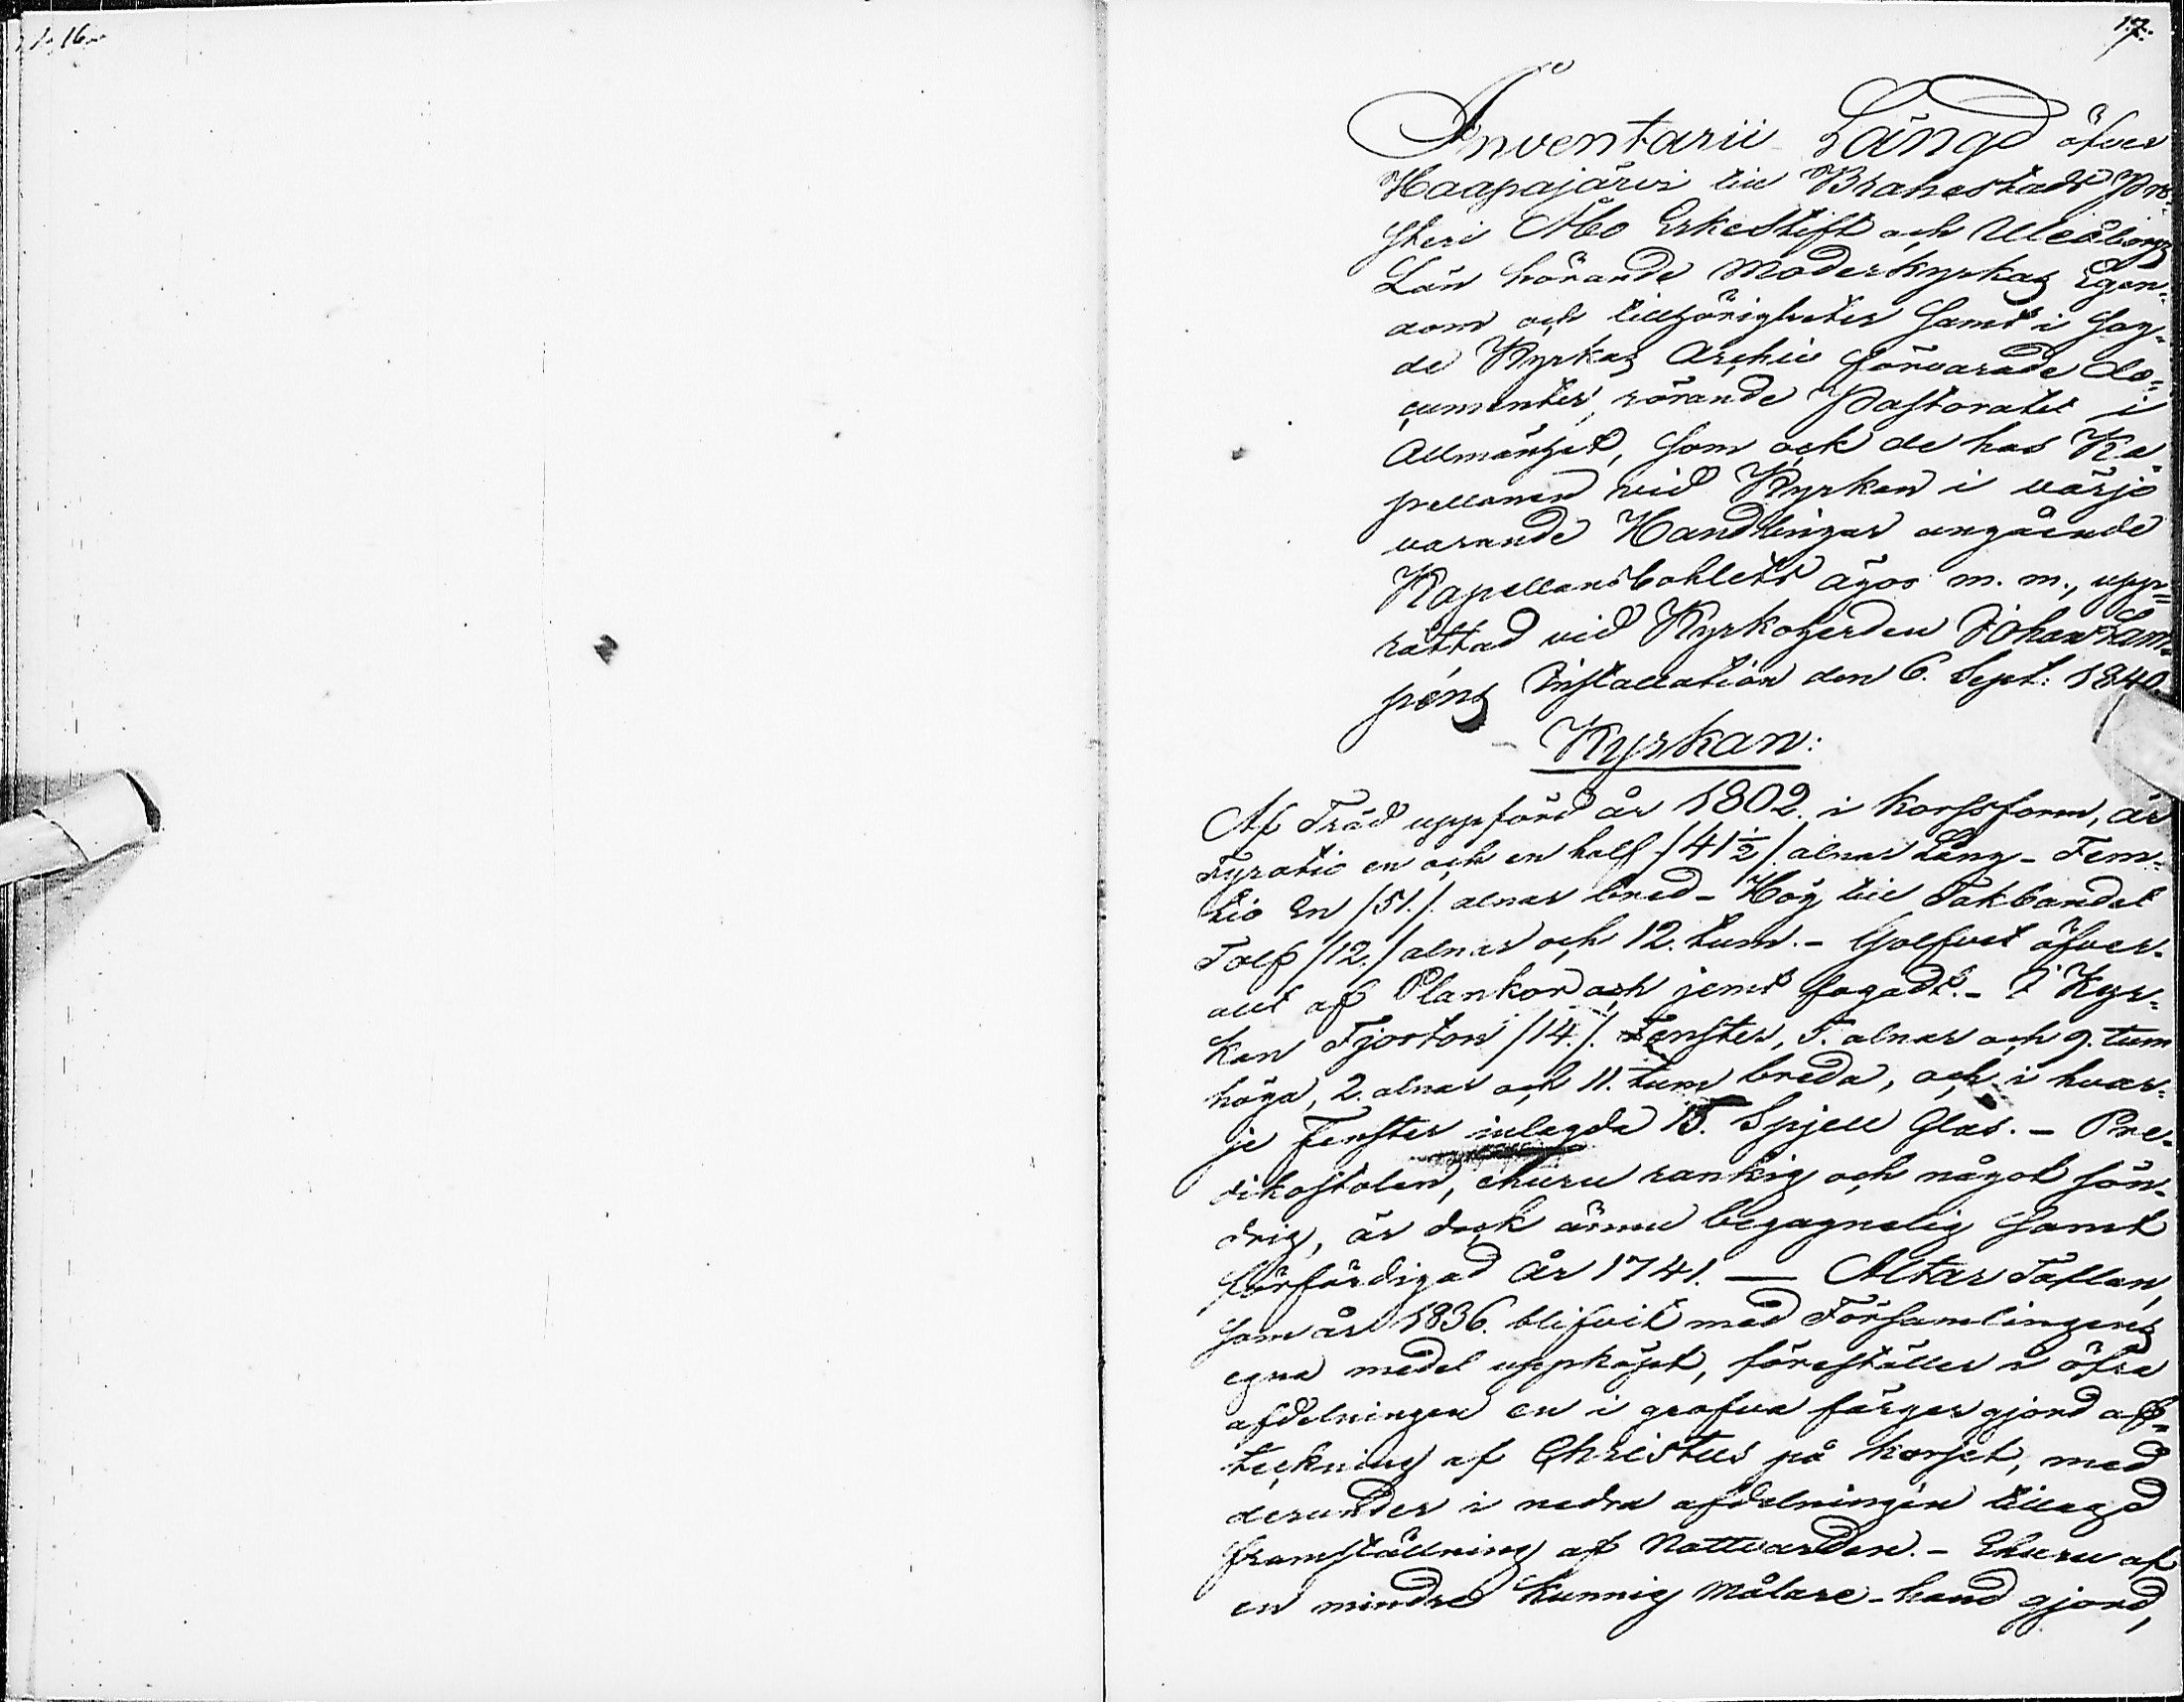 16
17.
Inventarii Längd öfver
Haapajärvi till Brahestads Pro-
steri Åbo Erkestift och Uleåborgs
Län hörande Moderkyrkas Egen-
dom och tillhörigheter samt i sag-
de Kyrkas Archiv förvarade do-
cumenter, rörande Pastoratet i
Allmänhet, som ock de hos Ka-
pellanen vid Kyrkan i värjo
varande Handlingar angående
Kapellansbohlets ägor m. m., upp-
rättad vid Kyrkoherden Johan Lam-
péns Installation den 6. Sept: 1840.
Kyrkan:
Af Träd uppförd år 1802. i korssform, är
Fyratio en och en half /41½/. alnar lång - Fem-
tio En /51./. alnar bred - Hög till Takbandet
Tolf /12./ alnar och 12. tum. - Golfvet öfver-
allt af Plankor och jemt fogadt. - I Kyr-
kan Fjorton /14./. Fenster, 5. alnar och 9. tum
höga, 2. alnar och 11. tum breda, och i hvar-
je Fenster inlagda 15. Spjell Glas. - Pre-
dikostolen, ehuru rankig och något sön-
drig, är dock ännu begagnelig samt
förfärdigad År 1741. — Altar Taflan,
som år 1836. blifvit med Församlingens
egna medel uppköpt, föreställer i öfra
afdelningen en i grofva färger gjord af-
teckning af Christus på korset, med
derunder i nedra afdelningen tillagd
framställning af Nattvarden. - Ehuru af
en mindre kunnig Målare-hand gjord,